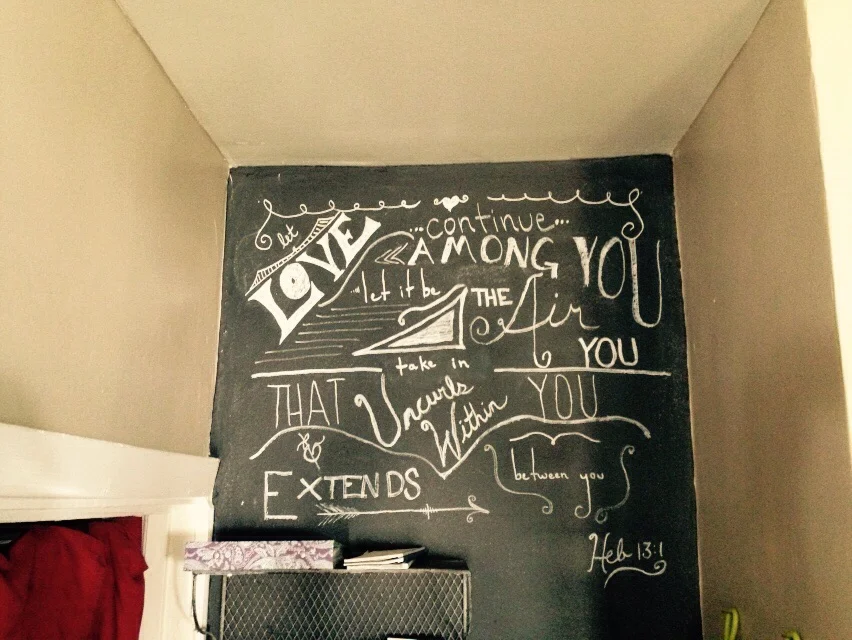 let
LOVE ...continue...
AMONG YOU
...let it be THE Air YOU
take in
THAT Uncurls Within YOU
& EXTENDS between you
Heb 13:1